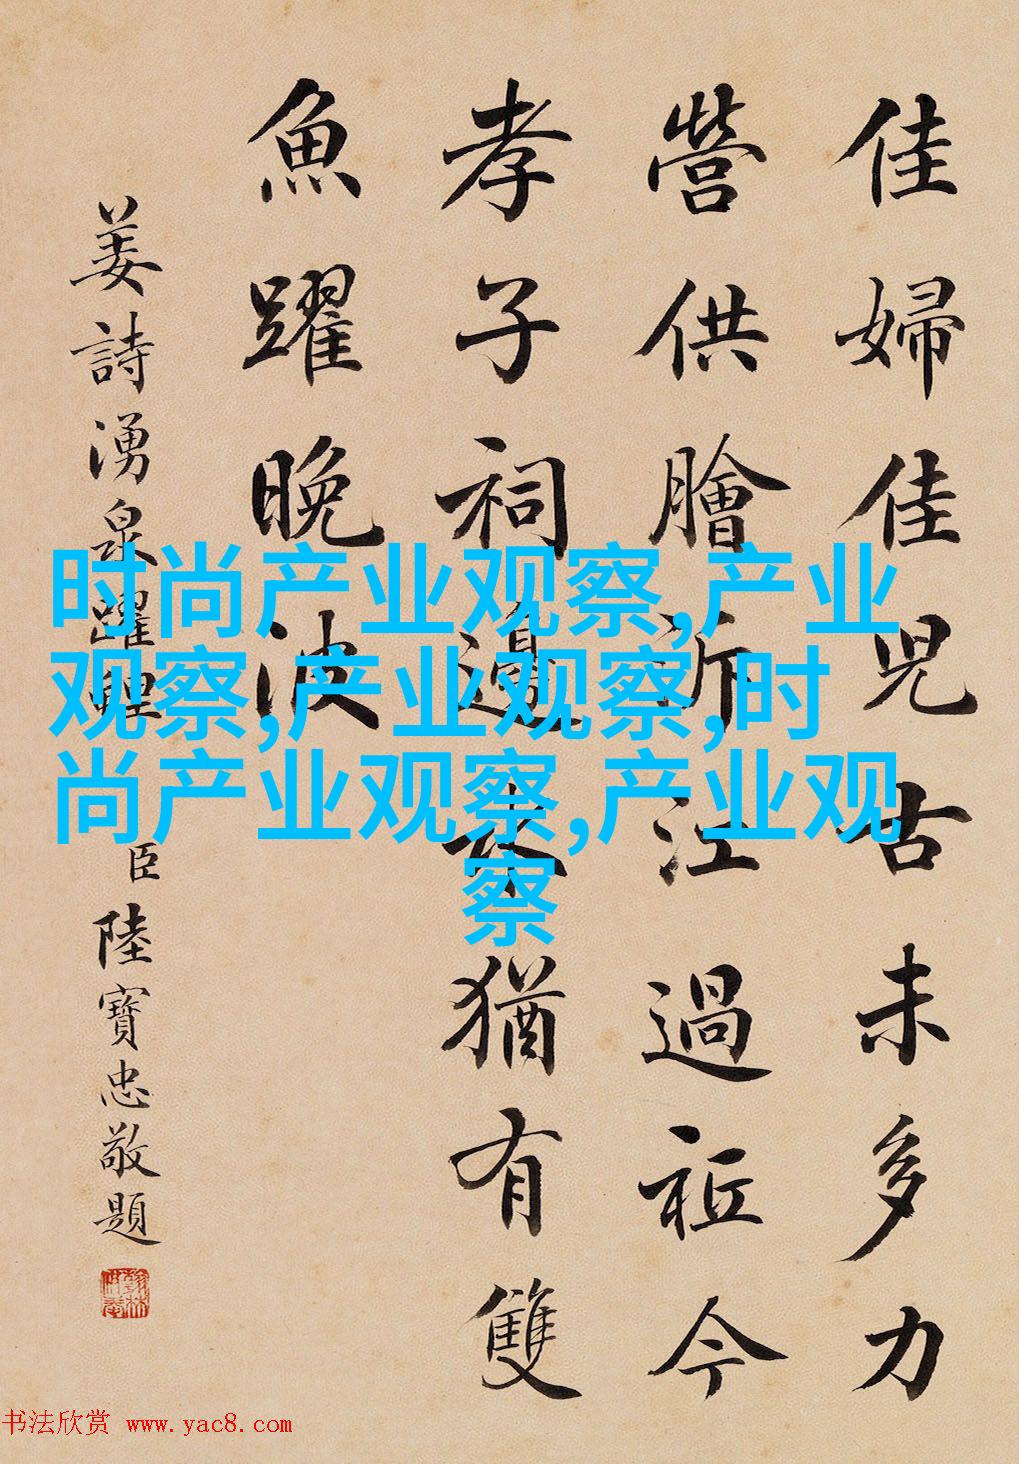 佳婦佳兒古未多力
營供膾泝江過祗今
孝子祠邊水猶有雙
魚躍晚波
姜詩湧泉躍鯉
臣陸寶忠敬題
时尚产业观察,产业
观察,产业观察,时
尚产业观察,产业观
察
书法欣赏 www.yac8.com